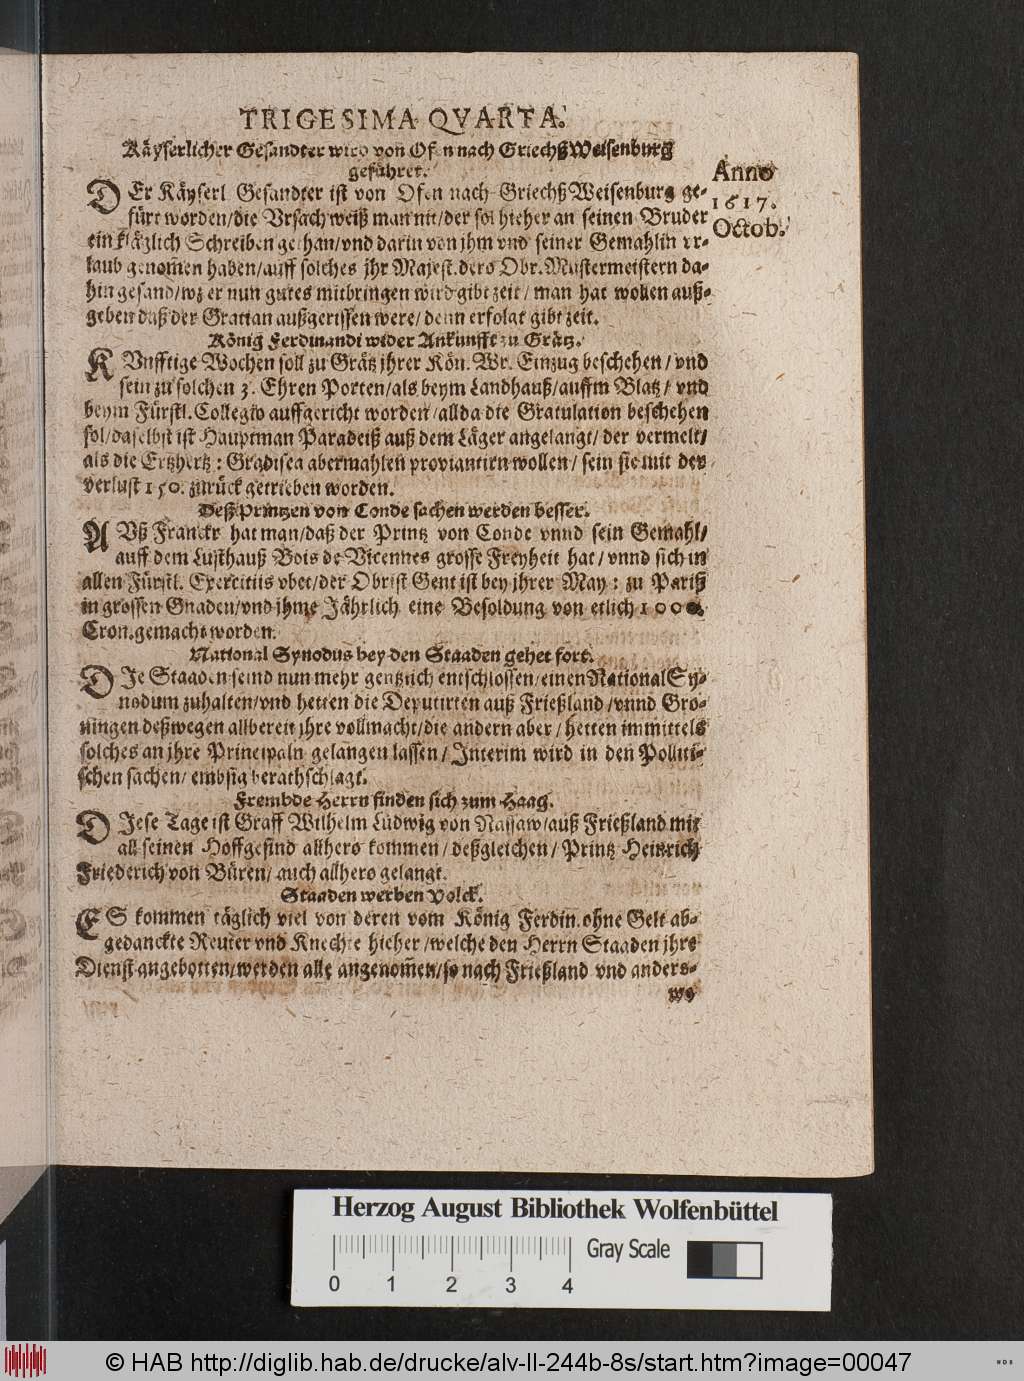 TRIGESIMA QVARTA.
Käyserlicher Gesandter wird von Ofen nach GriechßWeisenburg
geführet.
Anno
1617.
Octob.
DEr Käyserl Gesandter ist von Ofen nach GriechßWeisenburg ge-
fürt worden/die Vrsach weiß man nit/der sol hieher an seinen Bruder
ein kläglich Schreiben gethan/vnd darin von jhm vnd seiner Gemahlin vr-
laub genom̃en haben/auff solches jhr Majest. dero Obr. Mustermeistern da-
hin gesand/wz er nun gutes mitbringen wird gibt zeit/man hat wollen auß-
geben daß der Gratian außgerissen were/denn erfolgt gibt zeit.
König Ferdinandi wider Ankunfft zu Grätz.
KVnfftige Wochen soll zu Grätz jhrer Kön. Wr. Einzug beschehen/vnd
sein zu solchen 3. Ehren Porten/als beym Landhauß/auffm Blatz/vnd
beym Fürstl. Collegio auffgericht worden/allda die Gratulation beschehen
sol/daselbst ist Hauptman Paradeiß auß dem Läger angelangt/der vermelt/
als die Ertzhertz: Gradisca abermahlen proviantirn wollen/sein sie mit der
verlust 150. zurück getrieben worden.
Deß Printzen von Conde sachen werden besser.
AVß Franckr hat man/daß der Printz von Conde vnnd sein Gemahl/
auff dem Lusthauß Bois de Vicennes grosse Freyheit hat/vnnd sich in
allen Fürstl. Exercitiis vbet/der Obrist Gent ist bey jhrer May: zu Pariß
in grossen Gnaden/vnd jhme Jährlich eine Besoldung von etlich 1000.
Cron.gemacht worden.
National Synodus bey den Staaden gehet fort.
DJe Staaden seind nun mehr gentzlich entschlossen/einen National Sy-
nodum zuhalten/vnd hetten die Deputirten auß Frießland/vnnd Grö-
ningen deßwegen allbereit jhre vollmacht/die andern aber/hetten immittels
solches an jhre Principaln gelangen lassen/Jnterim wird in den Politi-
schen sachen/embsig berathschlagt.
Frembde Herrn finden sich zum Haag.
DJese Tage ist Graff Wilhelm Ludwig von Nassaw/auß Frießland mit
all seinen Hoffgesind allhero kommen/deßgleichen/Printz Heinrich
Friederich von Büren/auch allhero gelangt.
Staaden werben Volck.
ES kommen täglich viel von deren vom König Ferdin. ohne Gelt ab-
gedanckte Reuter vnd Knechte hieher/welche den Herrn Staaden jhre
Dienst angebotten/werden alle angenom̃en/so nach Frießland vnd anders-
wo
Herzog August Bibliothek Wolfenbüttel
Gray Scale
0 1 2 3 4
© HAB http://diglib.hab.de/drucke/alv-ll-244b-8s/start.htm?image=00047